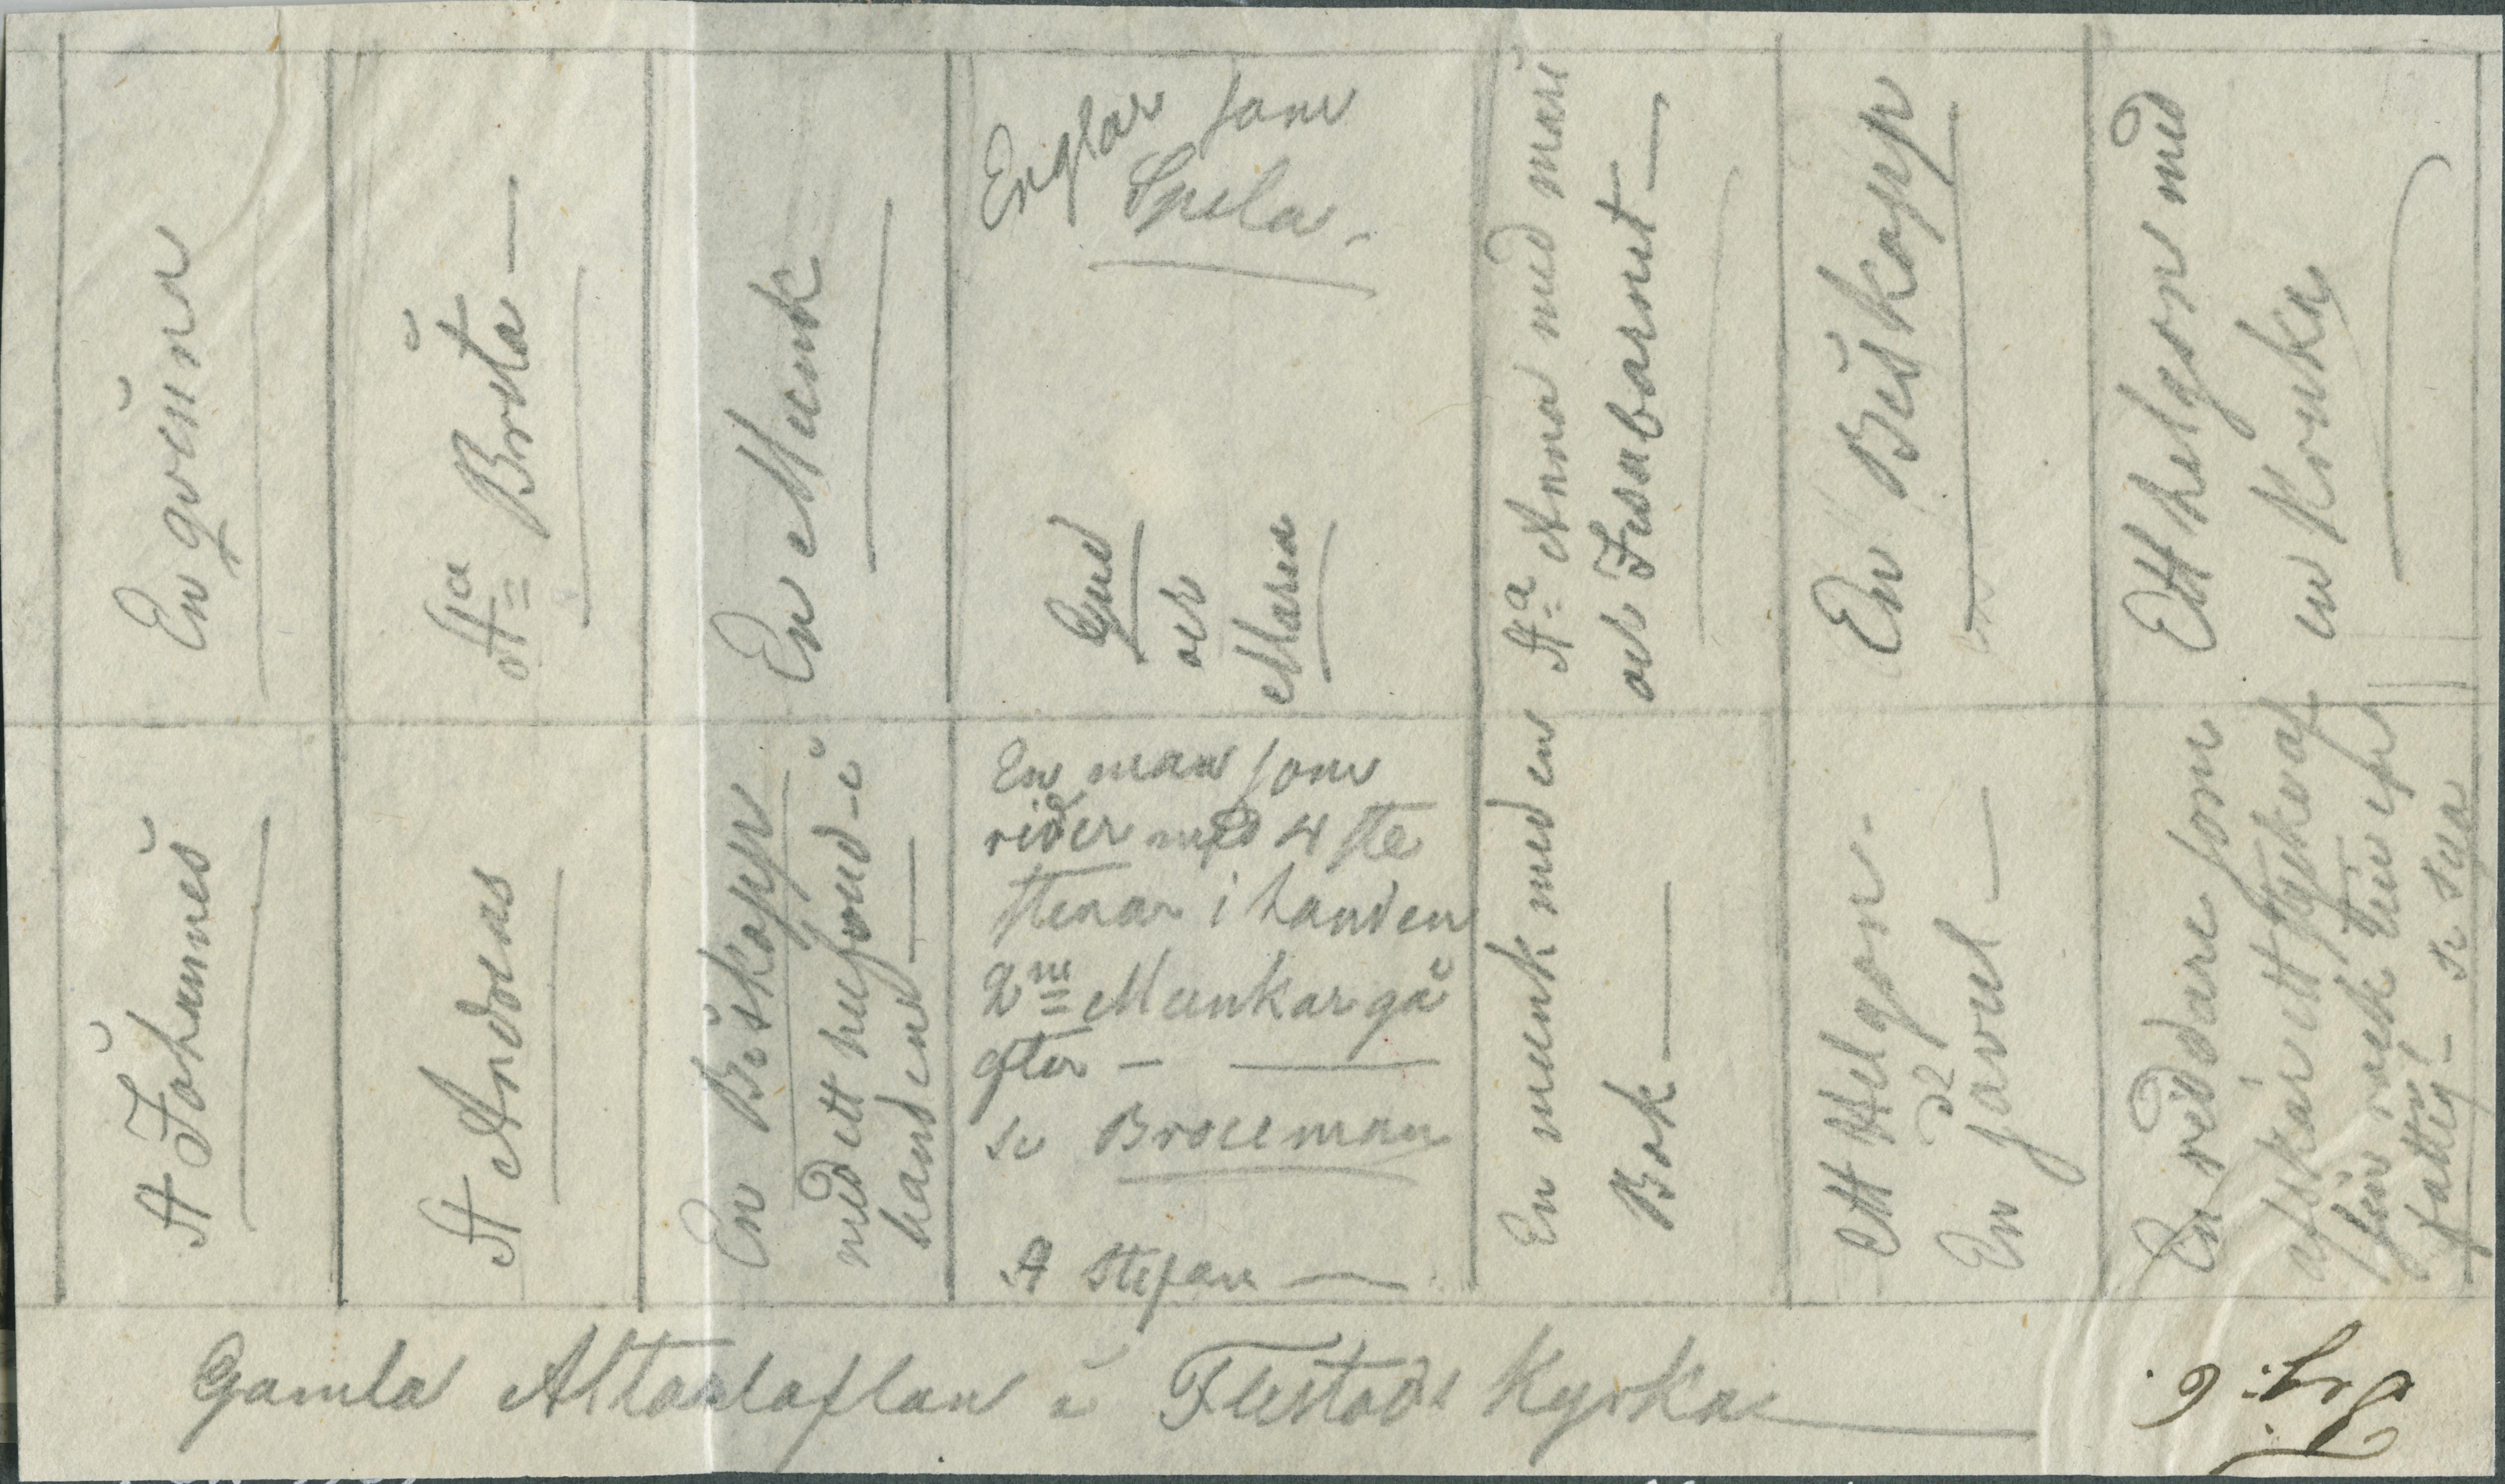 En qvinna
Sta Brita —
En Munk
Englar som
Spela.
Gud
och
Maria
Sta Anna med mari
och Jesubarnet —
En Biskopp
Ett helgon med
en Kruka
St Johannes
St Andreas
En Biskopp
med ett hufvud - i
handen
En man som
rider med 4 ste
stenar i handen
2ne Munkar gå
efter —
se Brocman
St Stefan —
En munk med en
Bok —
Ett Helgon.
En javul —
En riddare som
afskär ett stycke af
sin rock till en
fattig! —
Gamla Altartaflan i Flistads Kyrka